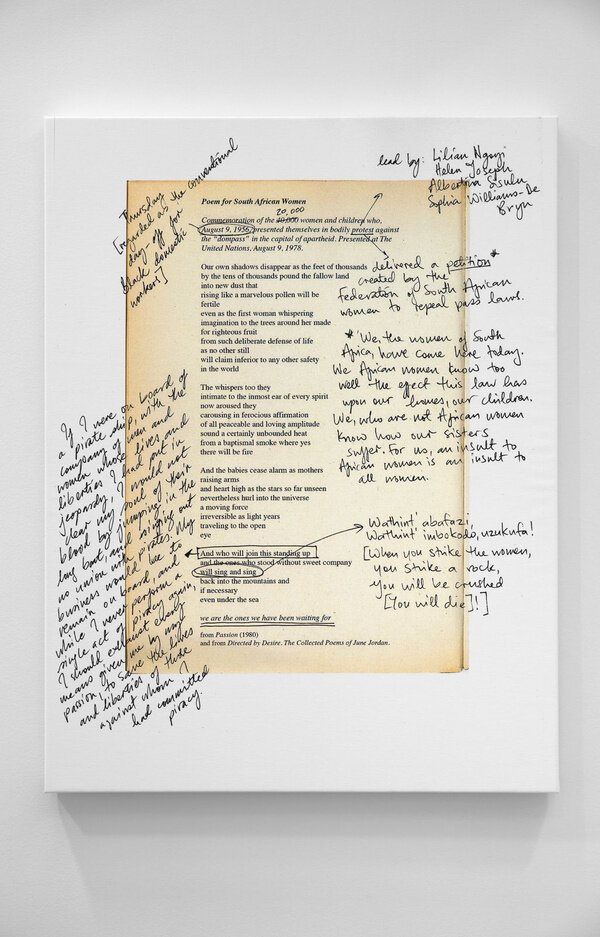 Thursday
[regarded as the conventional
day-off for
black domestic
workers]
lead by: Lilian Ngoyi
Helen Joseph
Albertina Sisulu
Sophia Williams-De
Bryn
Poem for South African Women
20,000
Commemoration of the 40,000 women and children who,
August 9, 1956, presented themselves in bodily protest against
the "dompass" in the capital of apartheid. Presented at The
United Nations, August 9, 1978.
Our own shadows disappear as the feet of thousands
by the tens of thousands pound the fallow land
into new dust that
rising like a marvelous pollen will be
fertile
even as the first woman whispering
imagination to the trees around her made
for righteous fruit
from such deliberate defense of life
as no other still
will claim inferior to any other safety
in the world
The whispers too they
intimate to the inmost ear of every spirit
now aroused they
carousing in ferocious affirmation
of all peaceable and loving amplitude
sound a certainly unbounded heat
from a baptismal smoke where yes
there will be fire
And the babies cease alarm as mothers
raising arms
and heart high as the stars so far unseen
nevertheless hurl into the universe
a moving force
irreversible as light years
traveling to the open
eye
And who will join this standing up
and the ones who stood without sweet company
will sing and sing
back into the mountains and
if necessary
even under the sea
we are the ones we have been waiting for
from Passion (1980)
and from Directed by Desire. The Collected Poems of June Jordan.
delivered a petition*
created by the
Federation of South African
women to repeal pass laws.
* 'We, the women of South
Africa, have come here today.
We African women know too
well the effect this law has
upon our homes, our children.
We, who are not African women
know how our sisters
suffer. For us, an insult to
African women is an insult to
all women.
Wathint' abafazi,
Wathint' imbokodo, uzukufa!
[When you strike the women,
you strike a rock,
you will be crushed
[you will die]!]
If I were on board of
a pirate ship, with the
company of men and
women whose lives and
liberties I had put in
jeopardy, I would not
clear my soul of their
blood by jumping in the
long boat, and singing out
no union with pirates. My
business would be to
remain on board, and
while I never perform a
single act of piracy again,
I should exhaust every
means given me by my
passion to save the lives
and liberties of those
against whom I
had committed
piracy.